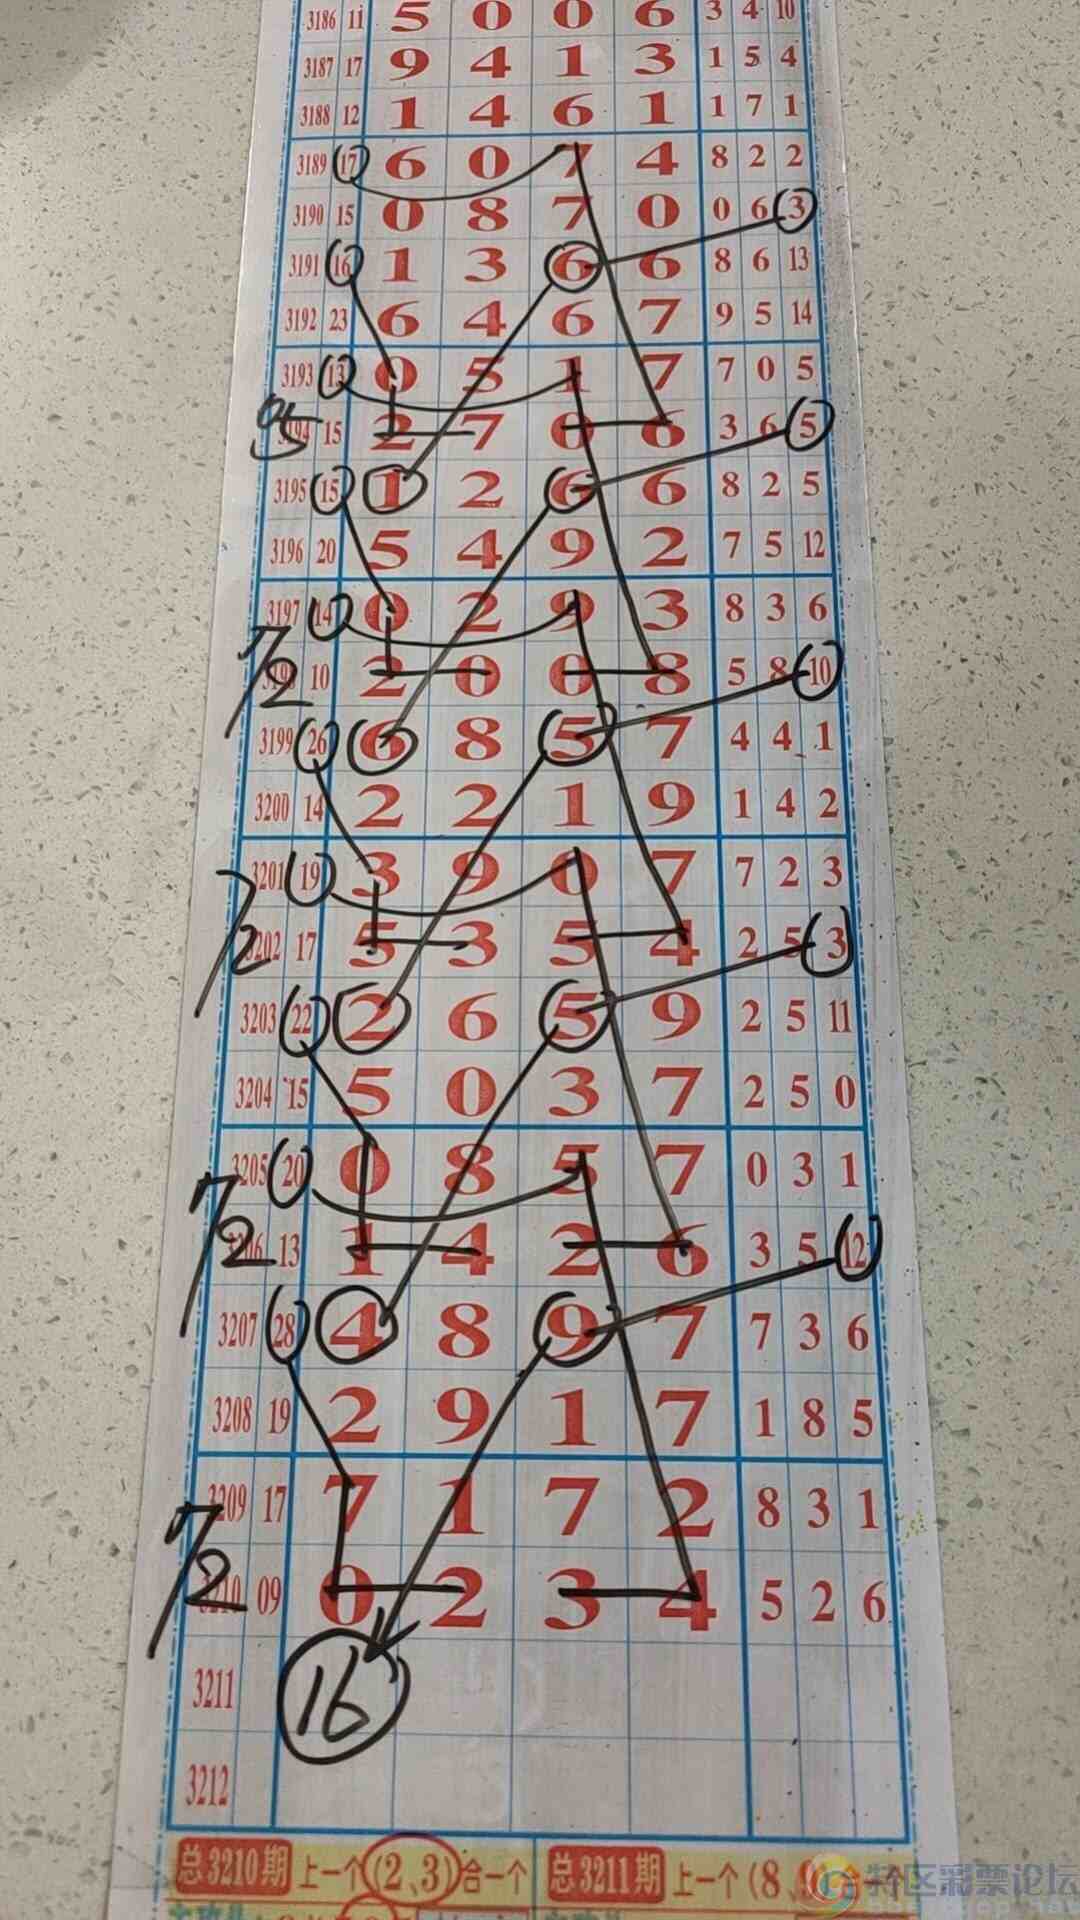 3186 11 5 0 0 6 3 4 10
3187 17 9 4 1 3 1 5 4
3188 12 1 4 6 1 1 7 1
3189 17 6 0 7 4 8 2 2
3190 15 0 8 7 0 0 6 3
3191 16 1 3 6 6 8 6 13
3192 23 6 4 6 7 9 5 14
3193 13 0 5 1 7 7 0 5
95 3194 15 2 7 0 6 3 6 5
3195 15 1 2 6 6 8 2 5
3196 20 5 4 9 2 7 5 12
3197 14 0 2 9 3 8 3 6
7/2 3198 10 2 0 0 8 5 8 10
3199 26 6 8 5 7 4 4 1
3200 14 2 2 1 9 1 4 2
3201 19 3 9 0 7 7 2 3
7/2 3202 17 5 3 5 4 2 5 3
3203 22 2 6 5 9 2 5 11
3204 15 5 0 3 7 2 5 0
3205 20 0 8 5 7 0 3 1
7/2 3206 13 1 4 2 6 3 5 12
3207 28 4 8 9 7 7 3 6
3208 19 2 9 1 7 1 8 5
3209 17 7 1 7 2 8 3 1
7/2 3210 09 0 2 3 4 5 2 6
3211 16
3212
总3210期 上一个(2、3)合一个 总3211期 上一个(8、
特区彩票论坛